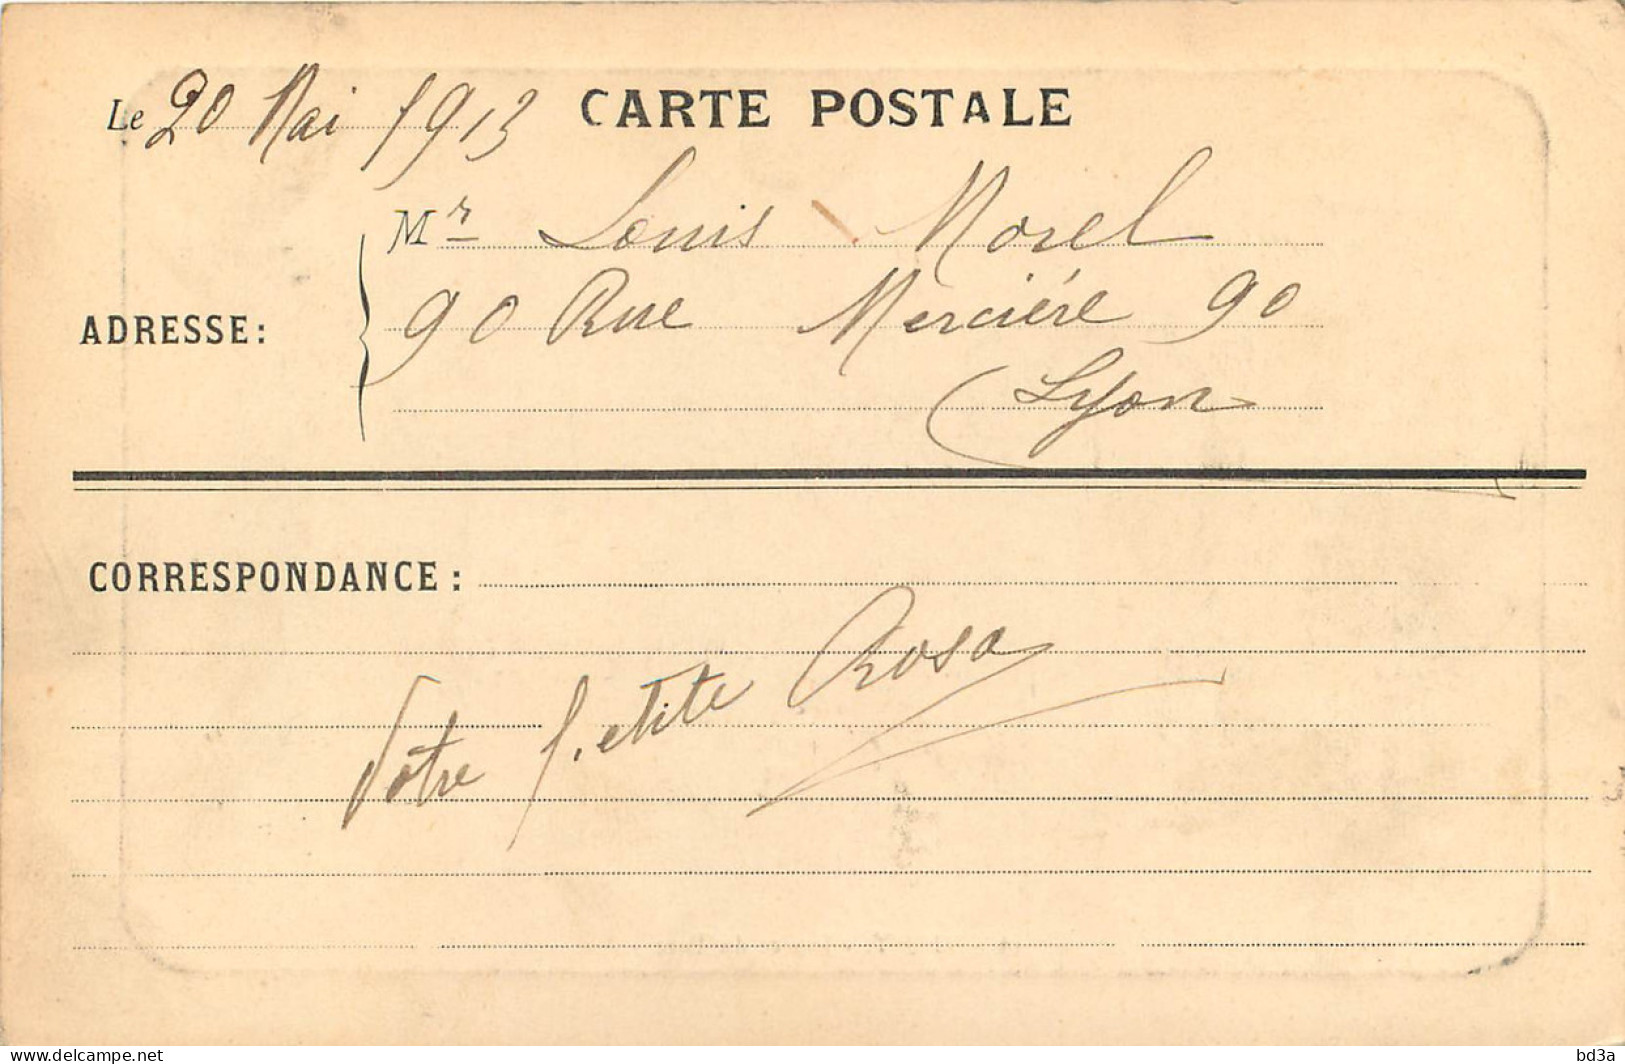 Le 20 Mai 1913 CARTE POSTALE
Mr Louis Morel
ADRESSE: 90 Rue Mercière 90
(Lyon
CORRESPONDANCE:
Vôtre petite Rosa
delcampe.net
bd3a